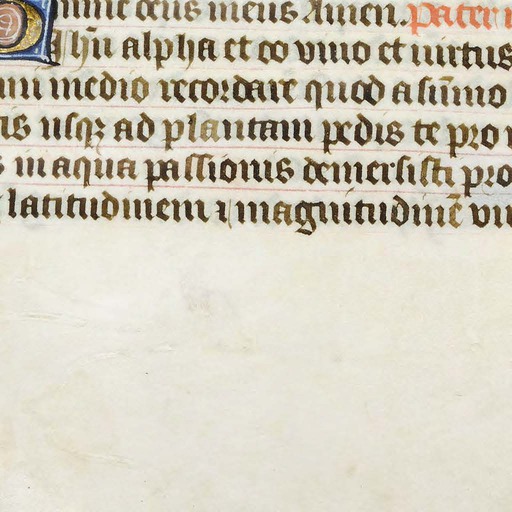 deus meus Amen. Pater
O Ihũ alpha et ω vivo et virtus
medio recordare quod a sum̃o
is usqꝫ ad plantam pedis te pro
in aqua passionis demersisti pro
latitudinem ⁊ magnitudinē